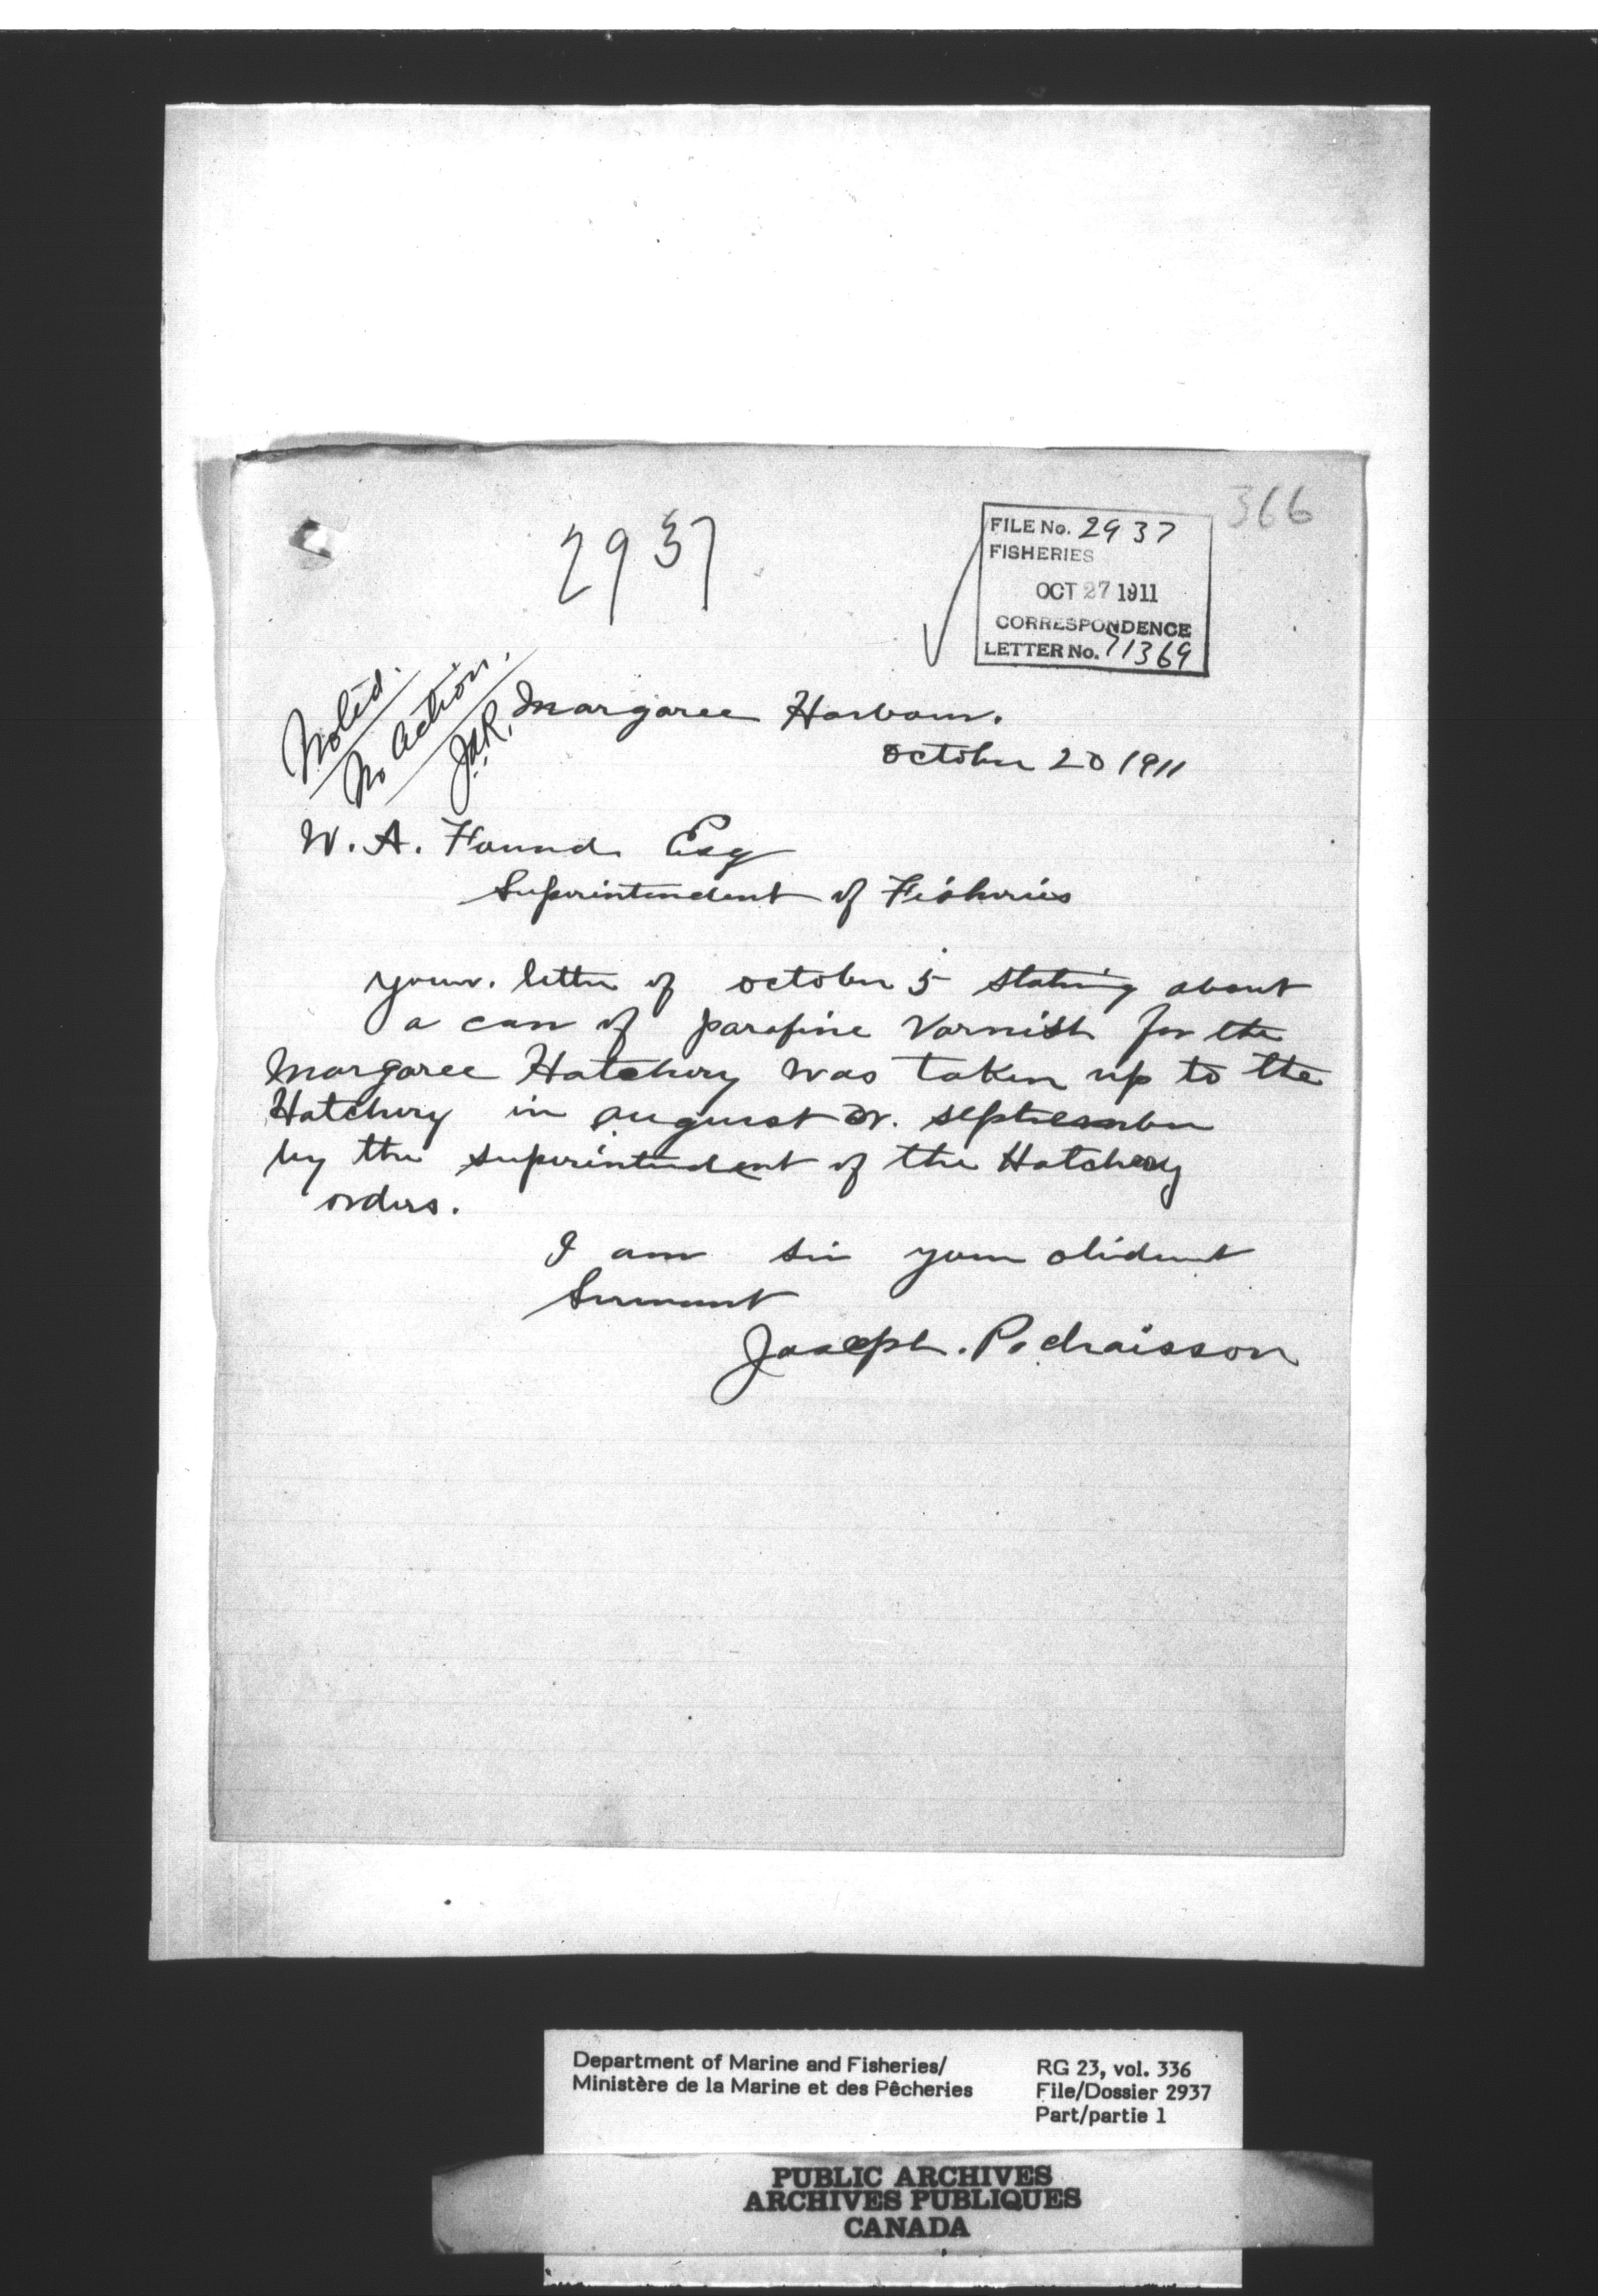 366
2937
FILE No. 2937
FISHERIES
OCT 27 1911
CORRESPONDENCE
LETTER No. 71369
Noted.
No action.
Margaree Harbour.
october 20 1911
W. A. Found Esq
Superintendent of Fisheries
your. letter of october 5 stating about
a can of parafine Varnish for the
Margaree Hatchery was taken up to the
Hatchery in august or. september
by the superintendent of the Hatchery
orders.
I am sir your obident
Servant
Joseph. P. chaisson
Department of Marine and Fisheries/
Ministère de la Marine et des Pêcheries
RG 23, vol. 336
File/Dossier 2937
Part/partie 1
PUBLIC ARCHIVES
ARCHIVES PUBLIQUES
CANADA